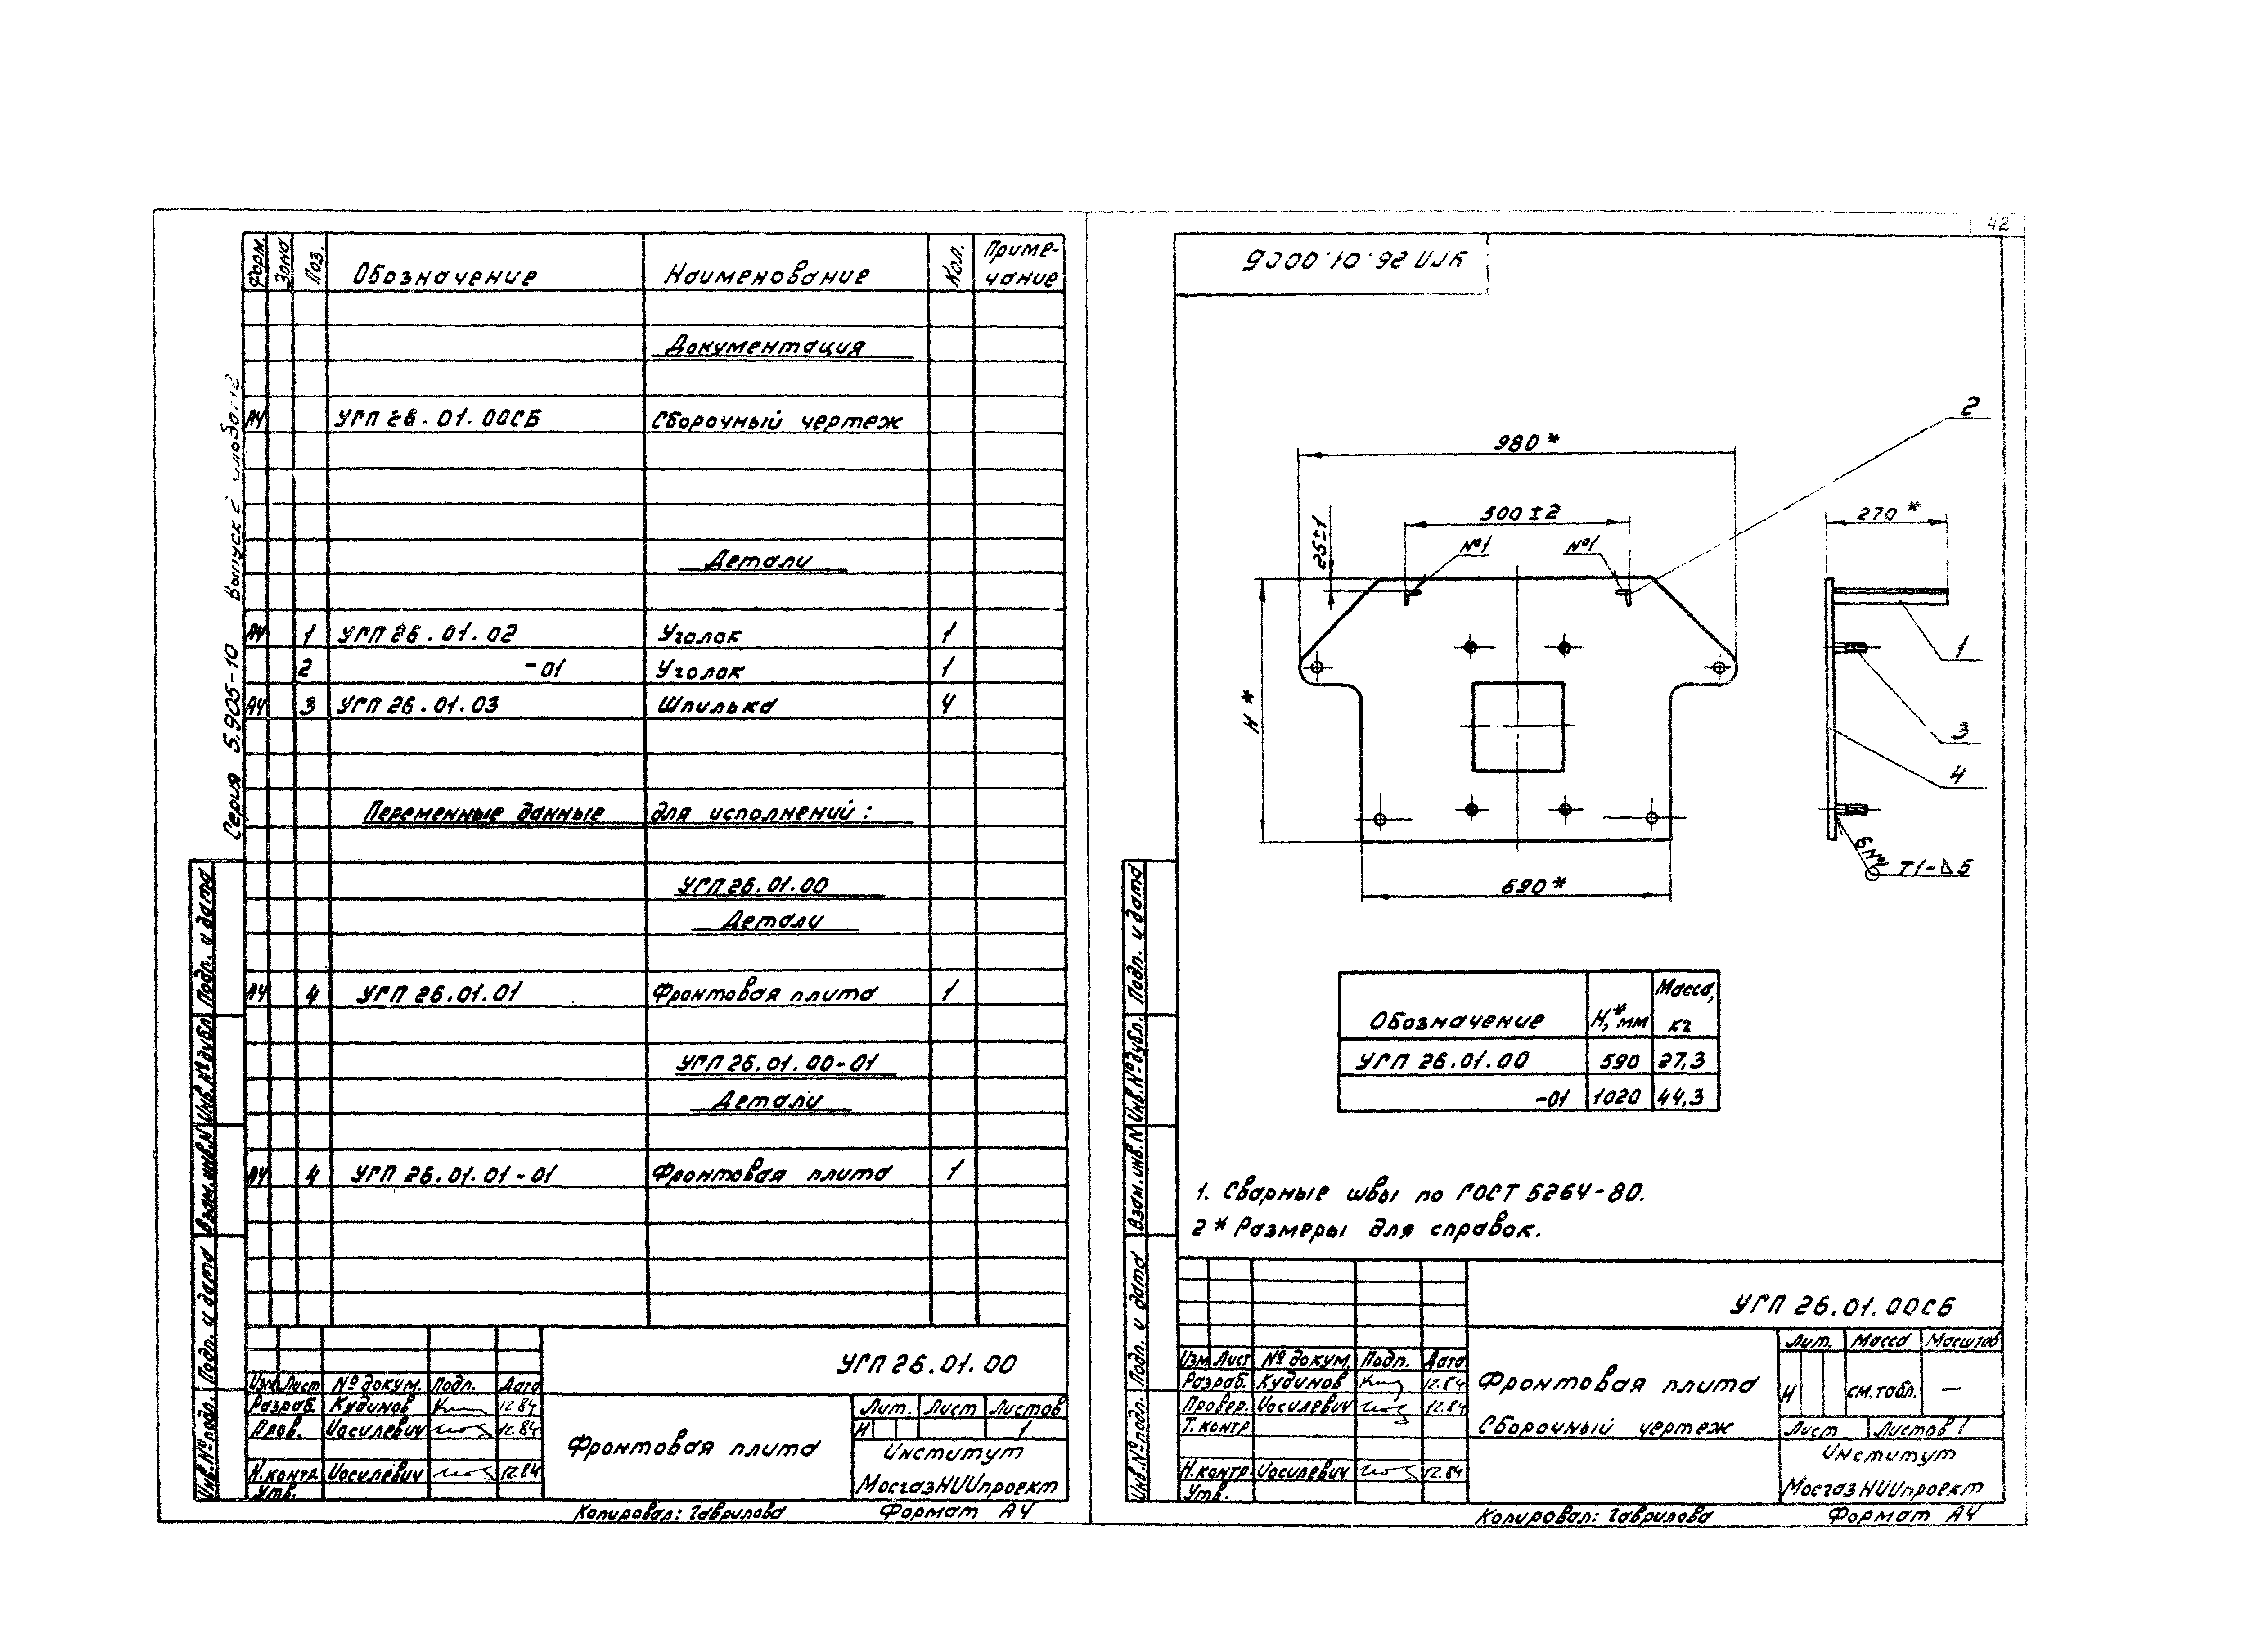 42
Форм.
Зона
Поз.
Обозначение
Наименование
Кол.
Приме-
чание
Документация
А4 УГП 26.01.00СБ Сборочный чертеж
Детали
А4 1 УГП 26.01.02 Уголок 1
2 -01 Уголок 1
А4 3 УГП 26.01.03 Шпилька 4
Переменные данные для исполнений:
УГП 26.01.00
Детали
А4 4 УГП 26.01.01 Фронтовая плита 1
УГП 26.01.00-01
Детали
А4 4 УГП 26.01.01-01 Фронтовая плита 1
Серия 5.905-10 Выпуск 2
Подп. и дата
Инв.№дубл.
Взам.инв.№
Подп. и дата
Инв.№подл.
УГП 26.01.00
Изм Лист № докум. Подп. Дата
Разраб. Кудинов 12.84
Пров. Иосилевич 12.84
Н.контр. Иосилевич 12.84
Утв.
Фронтовая плита
Лит. Лист Листов
И 1
Институт
МосгазНИИпроект
Копировал: Гаврилова Формат А4
УГП 26.01.00СБ
2
980*
500±2
270*
25±1
№1
№1
1
Н*
3
4
6 №1
Т1-△5
690*
Обозначение Н,* мм Масса, кг
УГП 26.01.00 590 27,3
-01 1020 44,3
1. Сварные швы по ГОСТ 5264-80.
2 * Размеры для справок.
Подп. и дата
Инв.№дубл.
Взам.инв.№
Подп. и дата
Инв.№подл.
УГП 26.01.00СБ
Изм Лист № докум. Подп. Дата
Разраб. Кудинов 12.84
Провер. Иосилевич 12.84
Т.контр
Н.контр. Иосилевич 12.84
Утв.
Фронтовая плита
Сборочный чертеж
Лит. Масса Масштаб
И см.табл. —
Лист Листов 1
Институт
МосгазНИИпроект
Копировал: Гаврилова Формат А4